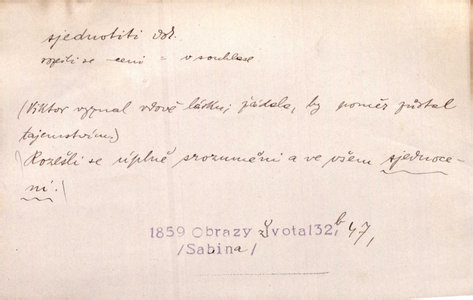 sjednotiti dok.
v souhlase
(Viktor vyznal vdově lásku; žádala, by poměr zůstal
tajemstvím.)
(Rozešli se úplně srozuměni a ve všem sjednoce-
ni.)
1859 Obrazy života 132, b 47,
/Sabina/